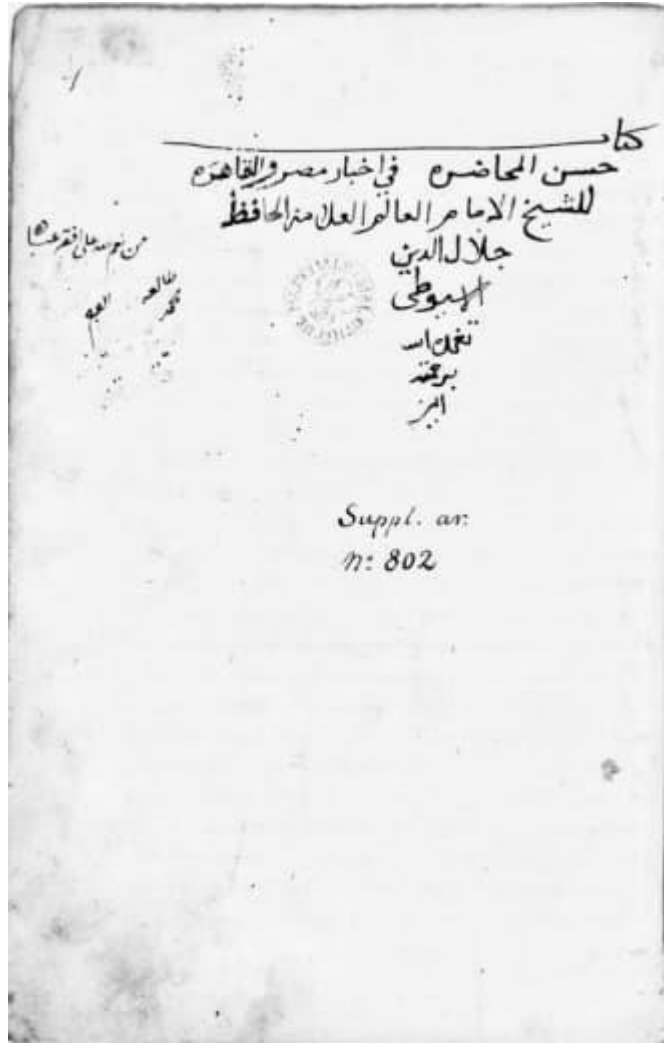 كتاب
حسن المحاضره في اخبار مصر والقاهره
للشيخ الامام العالم العلامه الحافظ
جلال الدين
الاسيوطي
تغمده الله
برحمته
امين
من نعم الله على افقر عباده
طالعه
Suppl. ar.
n: 802